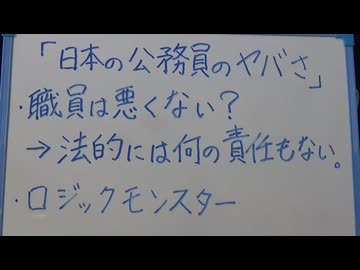 「日本の公務員のヤバさ」
・職員は悪くない?
→法的には何の責任もない。
・ロジックモンスター